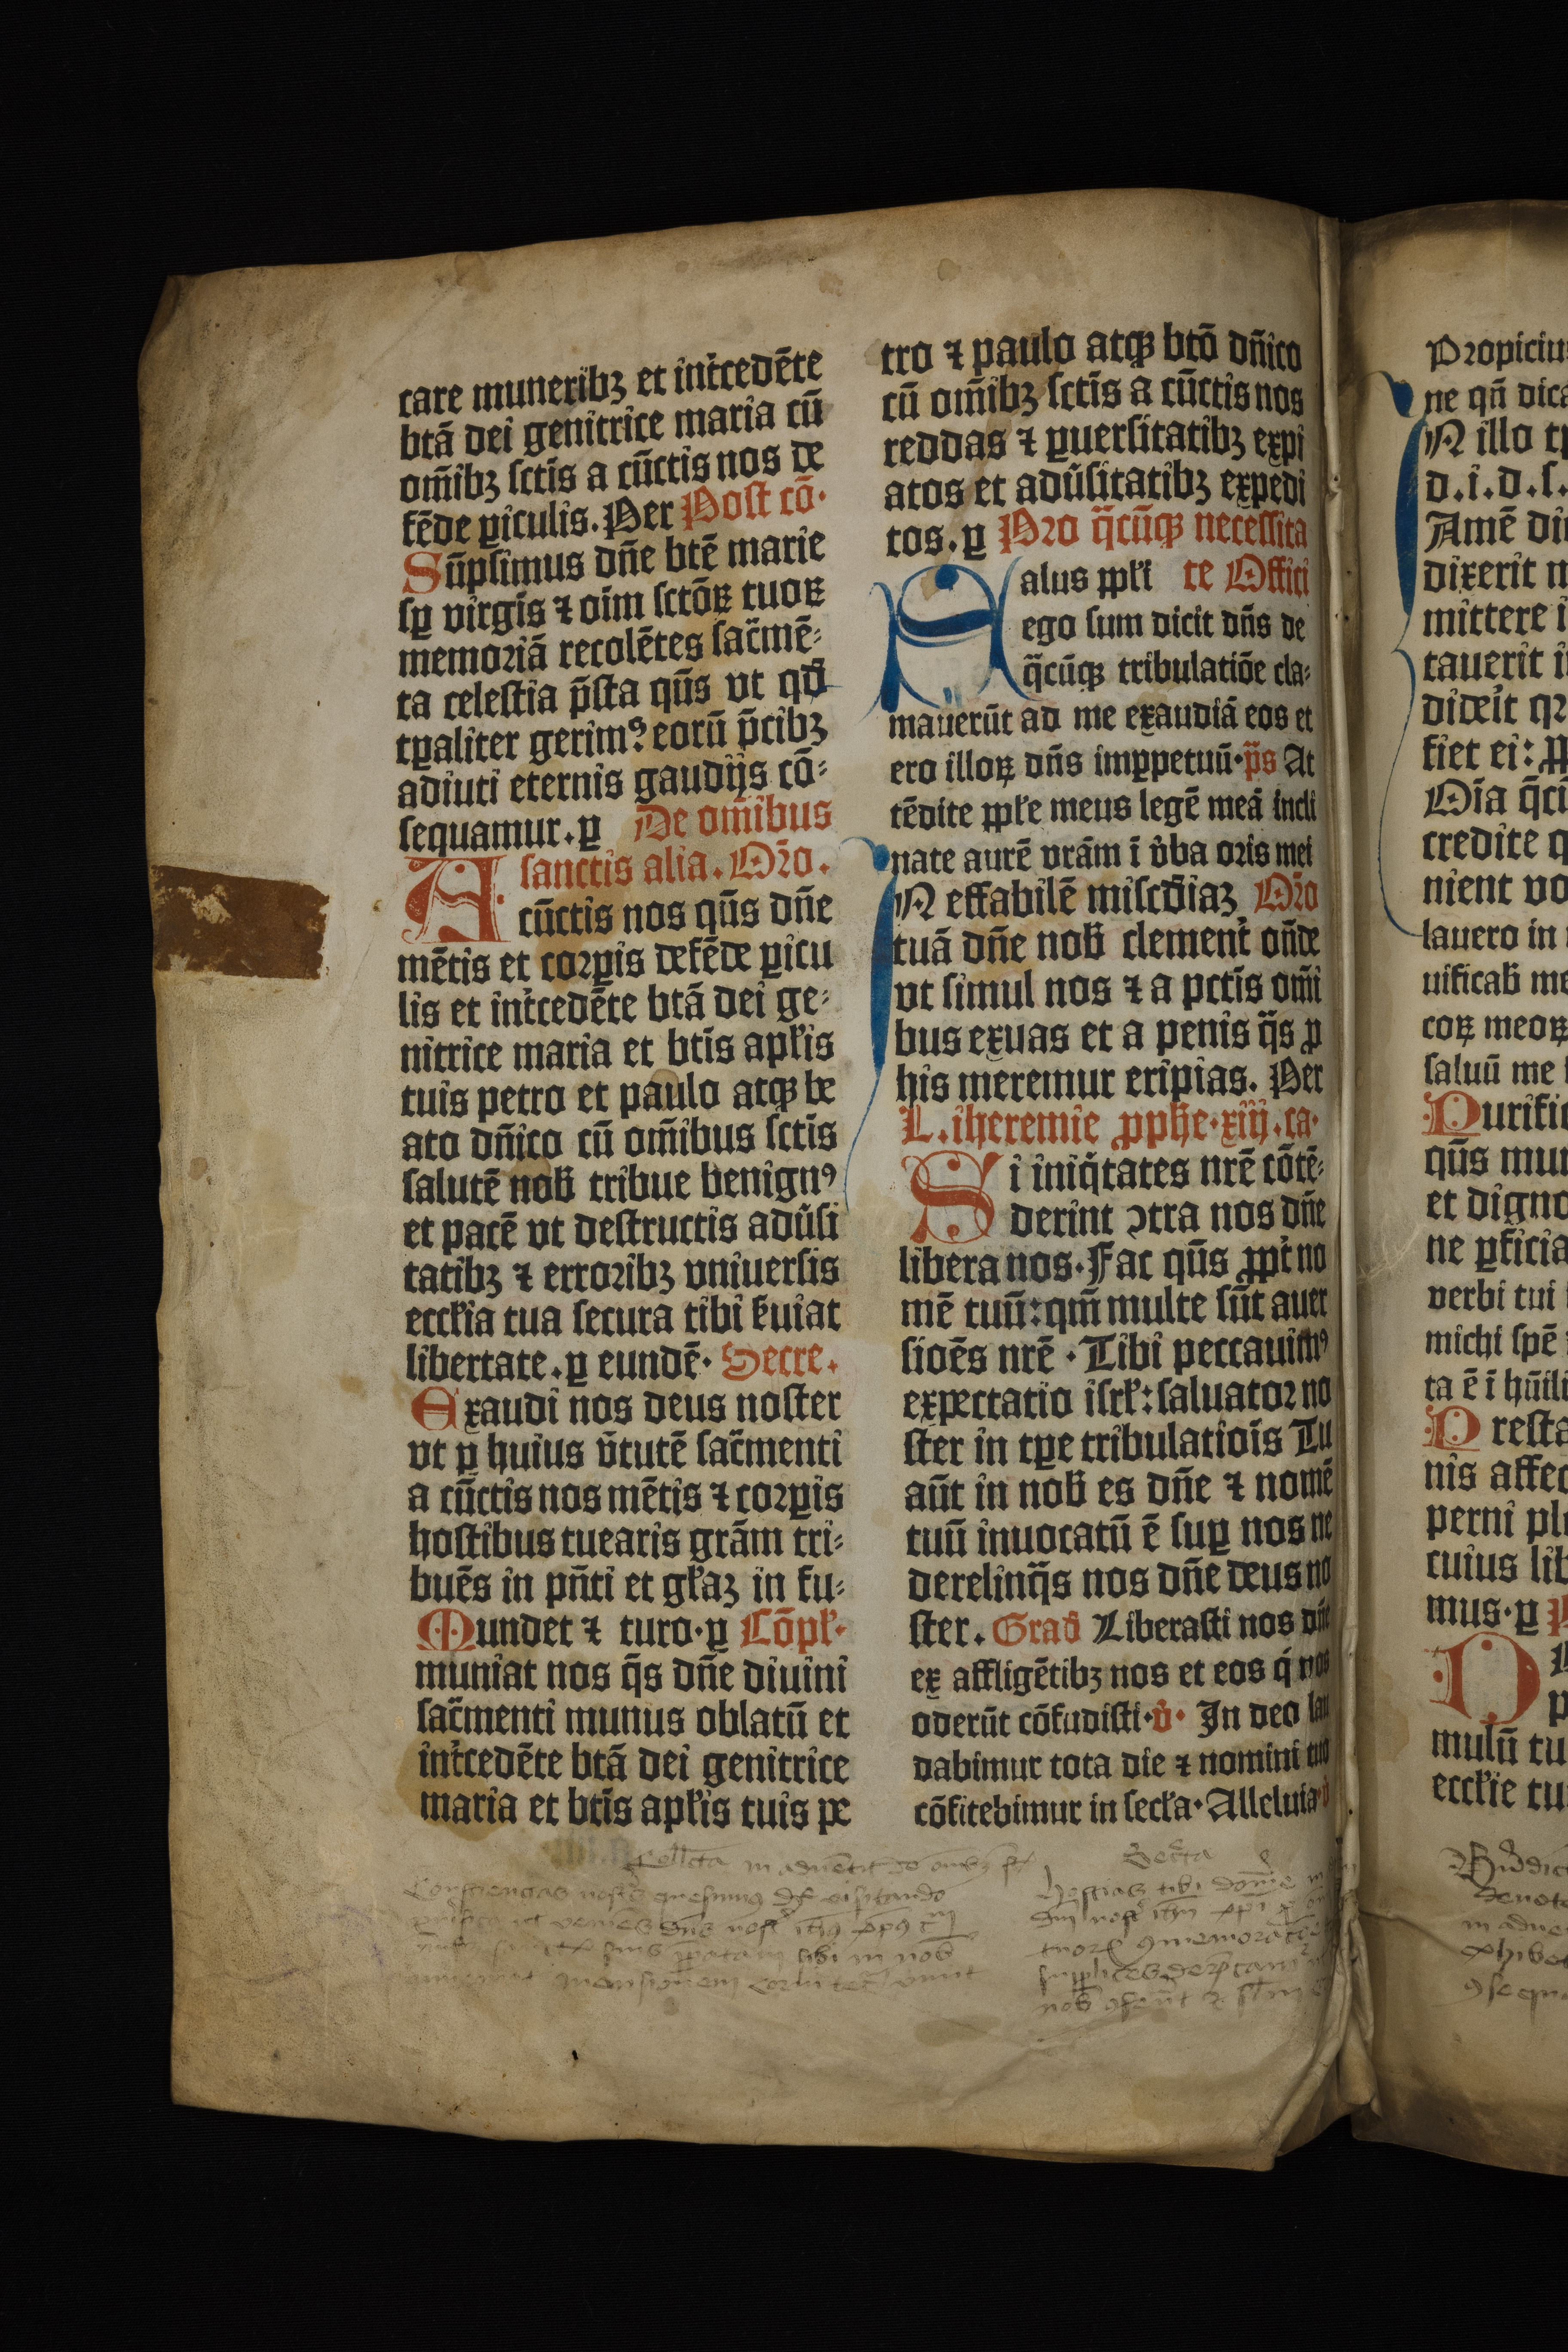 care muneribꝫ et int̉cedēte
btā dei genitrice maria cū
om̄ibꝫ sctīs a cūctis nos de
fēde ꝑiculis. Per Post cō·
Sūpsimus dn̄e btē marie
sꝑ virgīs ⁊ oīm sctōꝝ tuoꝝ
memoriā recolētes sac̄mē⸗
ta celestia p̄sta qūs vt qđ
tꝑaliter gerimꝰ eorū p̄cibꝫ
adiuti eternis gaudijs cō⸗
sequamur. ꝑ De om̄ibus
sanctis alia. Or̄o.
A cūctis nos qūs dn̄e
mētis et corꝑis defēde ꝑicu
lis et int̉cedēte btā dei ge⸗
nitrice maria et btīs apl̄is
tuis petro et paulo atqꝫ be
ato dn̄ico cū om̄ibus sctīs
salutē nob̄ tribue benignꝰ
et pacē vt destructis adūsi
tatibꝫ ⁊ erroribꝫ vniuersis
eccl̄ia tua secura tibi s̄uiat
libertate. ꝑ eundē. Secre.
Exaudi nos deus noster
vt ꝑ huius v̄tutē sac̄menti
a cūctis nos mētis ⁊ corꝑis
hostibus tuearis grām tri⸗
buēs in pn̄ti et gl̄iaꝫ in fu⸗
Mundet ⁊ turo. ꝑ Cōpl̄.
muniat nos q̄s dn̄e diuini
sac̄menti munus oblatū et
int̉cedēte btā dei genitrice
maria et btīs apl̄is tuis pe
tro ⁊ paulo atqꝫ btō dn̄ico
cū om̄ibꝫ sctīs a cūctis nos
reddas ⁊ ꝑuersitatibꝫ expi
atos et adūsitatibꝫ expedi
tos. ꝑ Pro q̄cūqꝫ necessita
Salus ppl̄i te Offici
ego sum dicit dn̄s de
q̄cūqꝫ tribulatiōe cla⸗
mauerūt ad me exaudiā eos et
ero illoꝝ dn̄s imꝑpetuū. p̄s At
tēdite ppl̄e meus legē meā incli
nate aurē vrām ī v̉ba oris mei
IN effabilē misc̄diaꝫ Or̄o
tuā dn̄e nob̄ clement̉ on̄de
vt simul nos ⁊ a pctīs om̄i
bus exuas et a penis q̄s ꝓ
his meremur eripias. Per
L. iheremie ꝓphe. xiiij. ca.
Si iniq̇tates nrē cōtē⸗
derint ↄtra nos dn̄e
libera nos. Fac qūs ꝓpt̉ no
mē tuū: qm̄ multe sūt auer
sioēs nrē . Tibi peccauimꝰ
expectatio isrl̄: saluator no
ster in tꝑe tribulatiōis Tu
aūt in nob̄ es dn̄e ⁊ nomē
tuū inuocatū ē suꝑ nos ne
derelinq̄s nos dn̄e deus no
ster. Grad̄ Liberasti nos dn̄e
ex affligētibꝫ nos et eos q̇ nos
oderūt cōfudisti. v̉. In deo lau
dabimur tota die ⁊ nomini tuo
cōfitebimur in secl̄a. Alleluia. v̉
Collecta in aduentu de
Consciencias nostras quesumus visitando
Secreta
Hostias tibi domine
supplices deprecamur
Propiciu
ne qn̄ dica
IN illo tp
d. i. d. s.
Amē di
dixerit
mittere i
tauerit i
diderit
fiet ei:
Oīa q̄cū
credite q
nient vo
lauero in
uificab̄ me
coꝝ meoꝝ
saluū me
Purific
qūs mun
et digno
ne ꝑficia
verbi tui
michi spē
ta ē ī hūili
Presta
nis affec
perni pl
cuius lib
mus. ꝑ
mulū tu
eccl̄ie tu